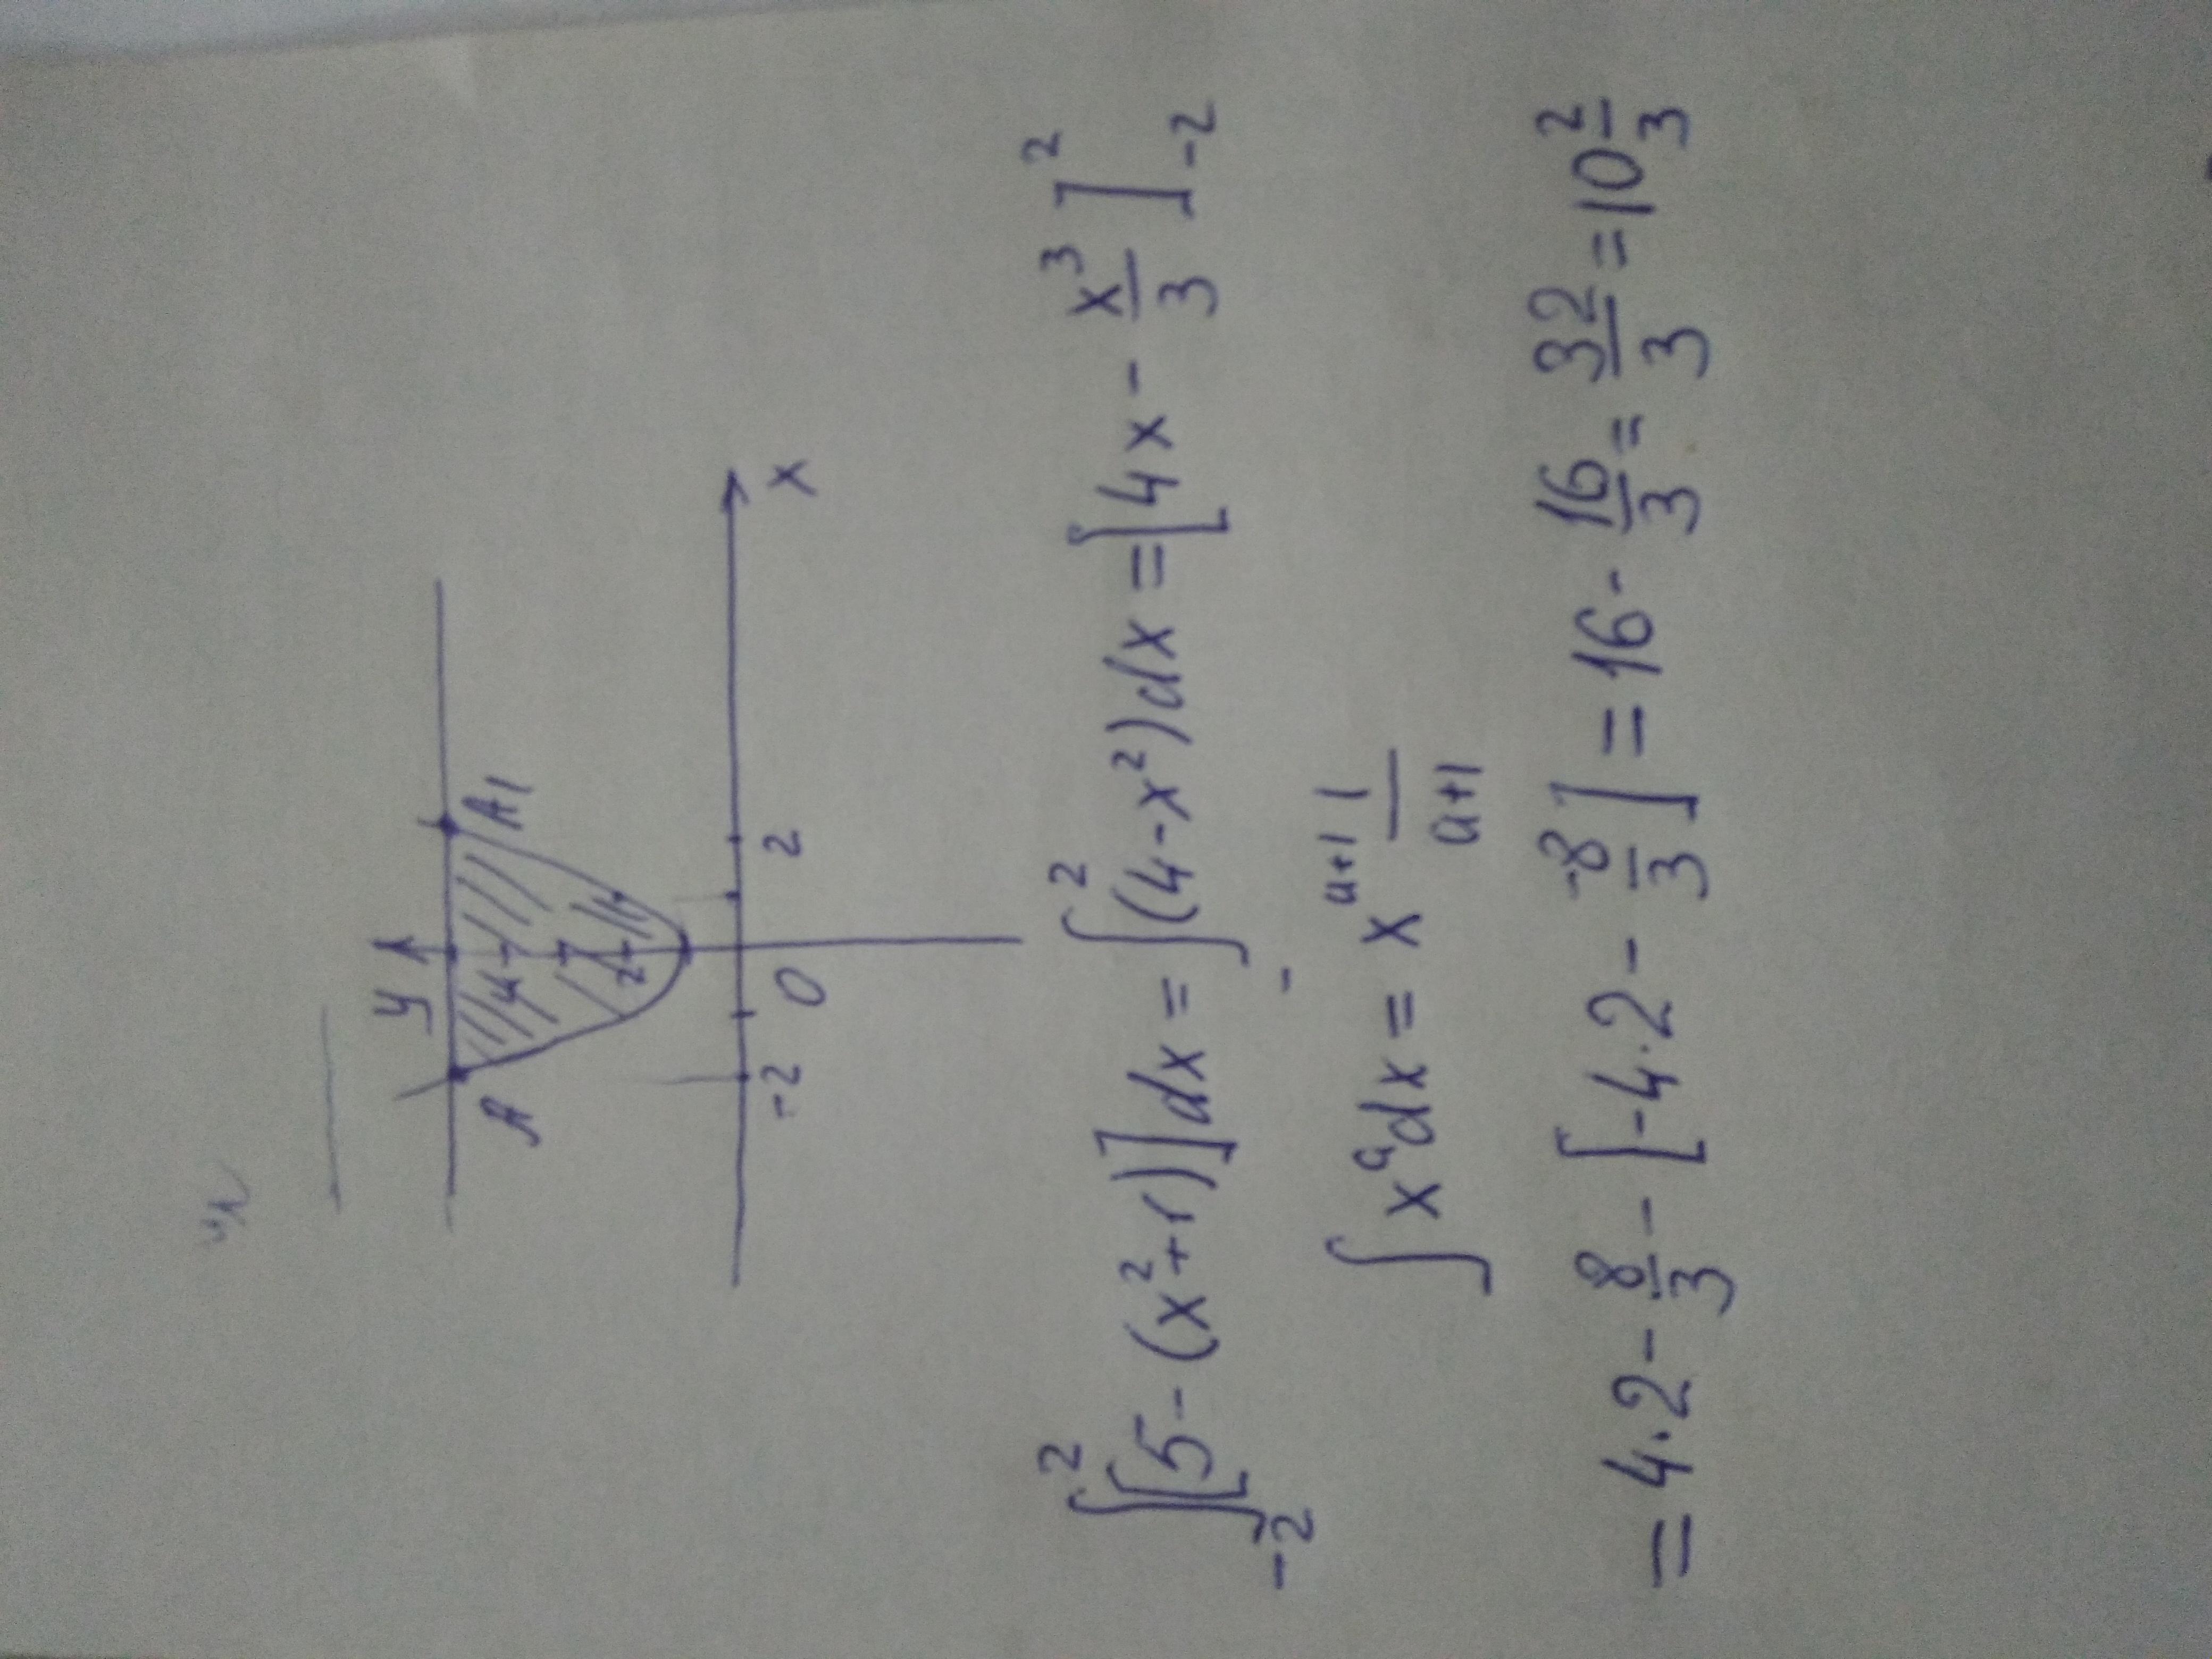 y
A A1
4
2
-2 0 2 x
∫_{-2}^{2} [5 - (x² + 1)] dx = ∫_{-}^{2} (4 - x²) dx = [4x - x³/3]_{-2}^{2}
∫ x^a dx = x^{a+1} 1/(a+1)
= 4·2 - 8/3 - [-4·2 - -8/3] = 16 - 16/3 = 32/3 = 10 2/3